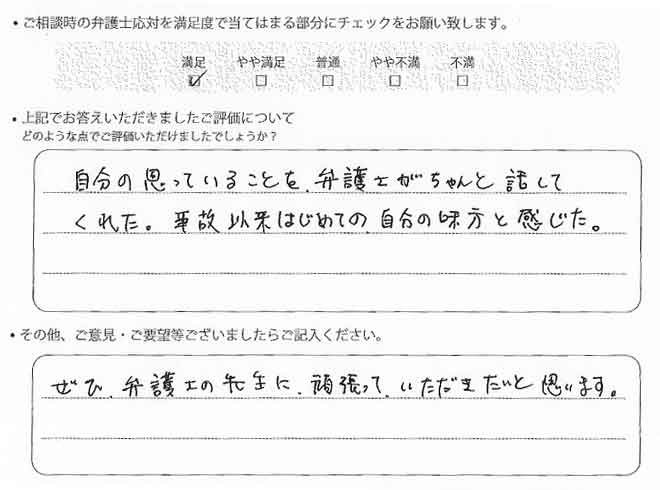 ・ご相談時の弁護士応対を満足度で当てはまる部分にチェックをお願い致します。
満足 やや満足 普通 やや不満 不満
☑ □ □ □ □
・上記でお答えいただきましたご評価について
どのような点でご評価いただけましたでしょうか？
自分の思っていることを、弁護士がちゃんと話して
くれた。事故以来はじめての、自分の味方と感じた。
・その他、ご意見・ご要望等ございましたらご記入ください。
ぜひ、弁護士の先生に、頑張って、いただきたいと思います。